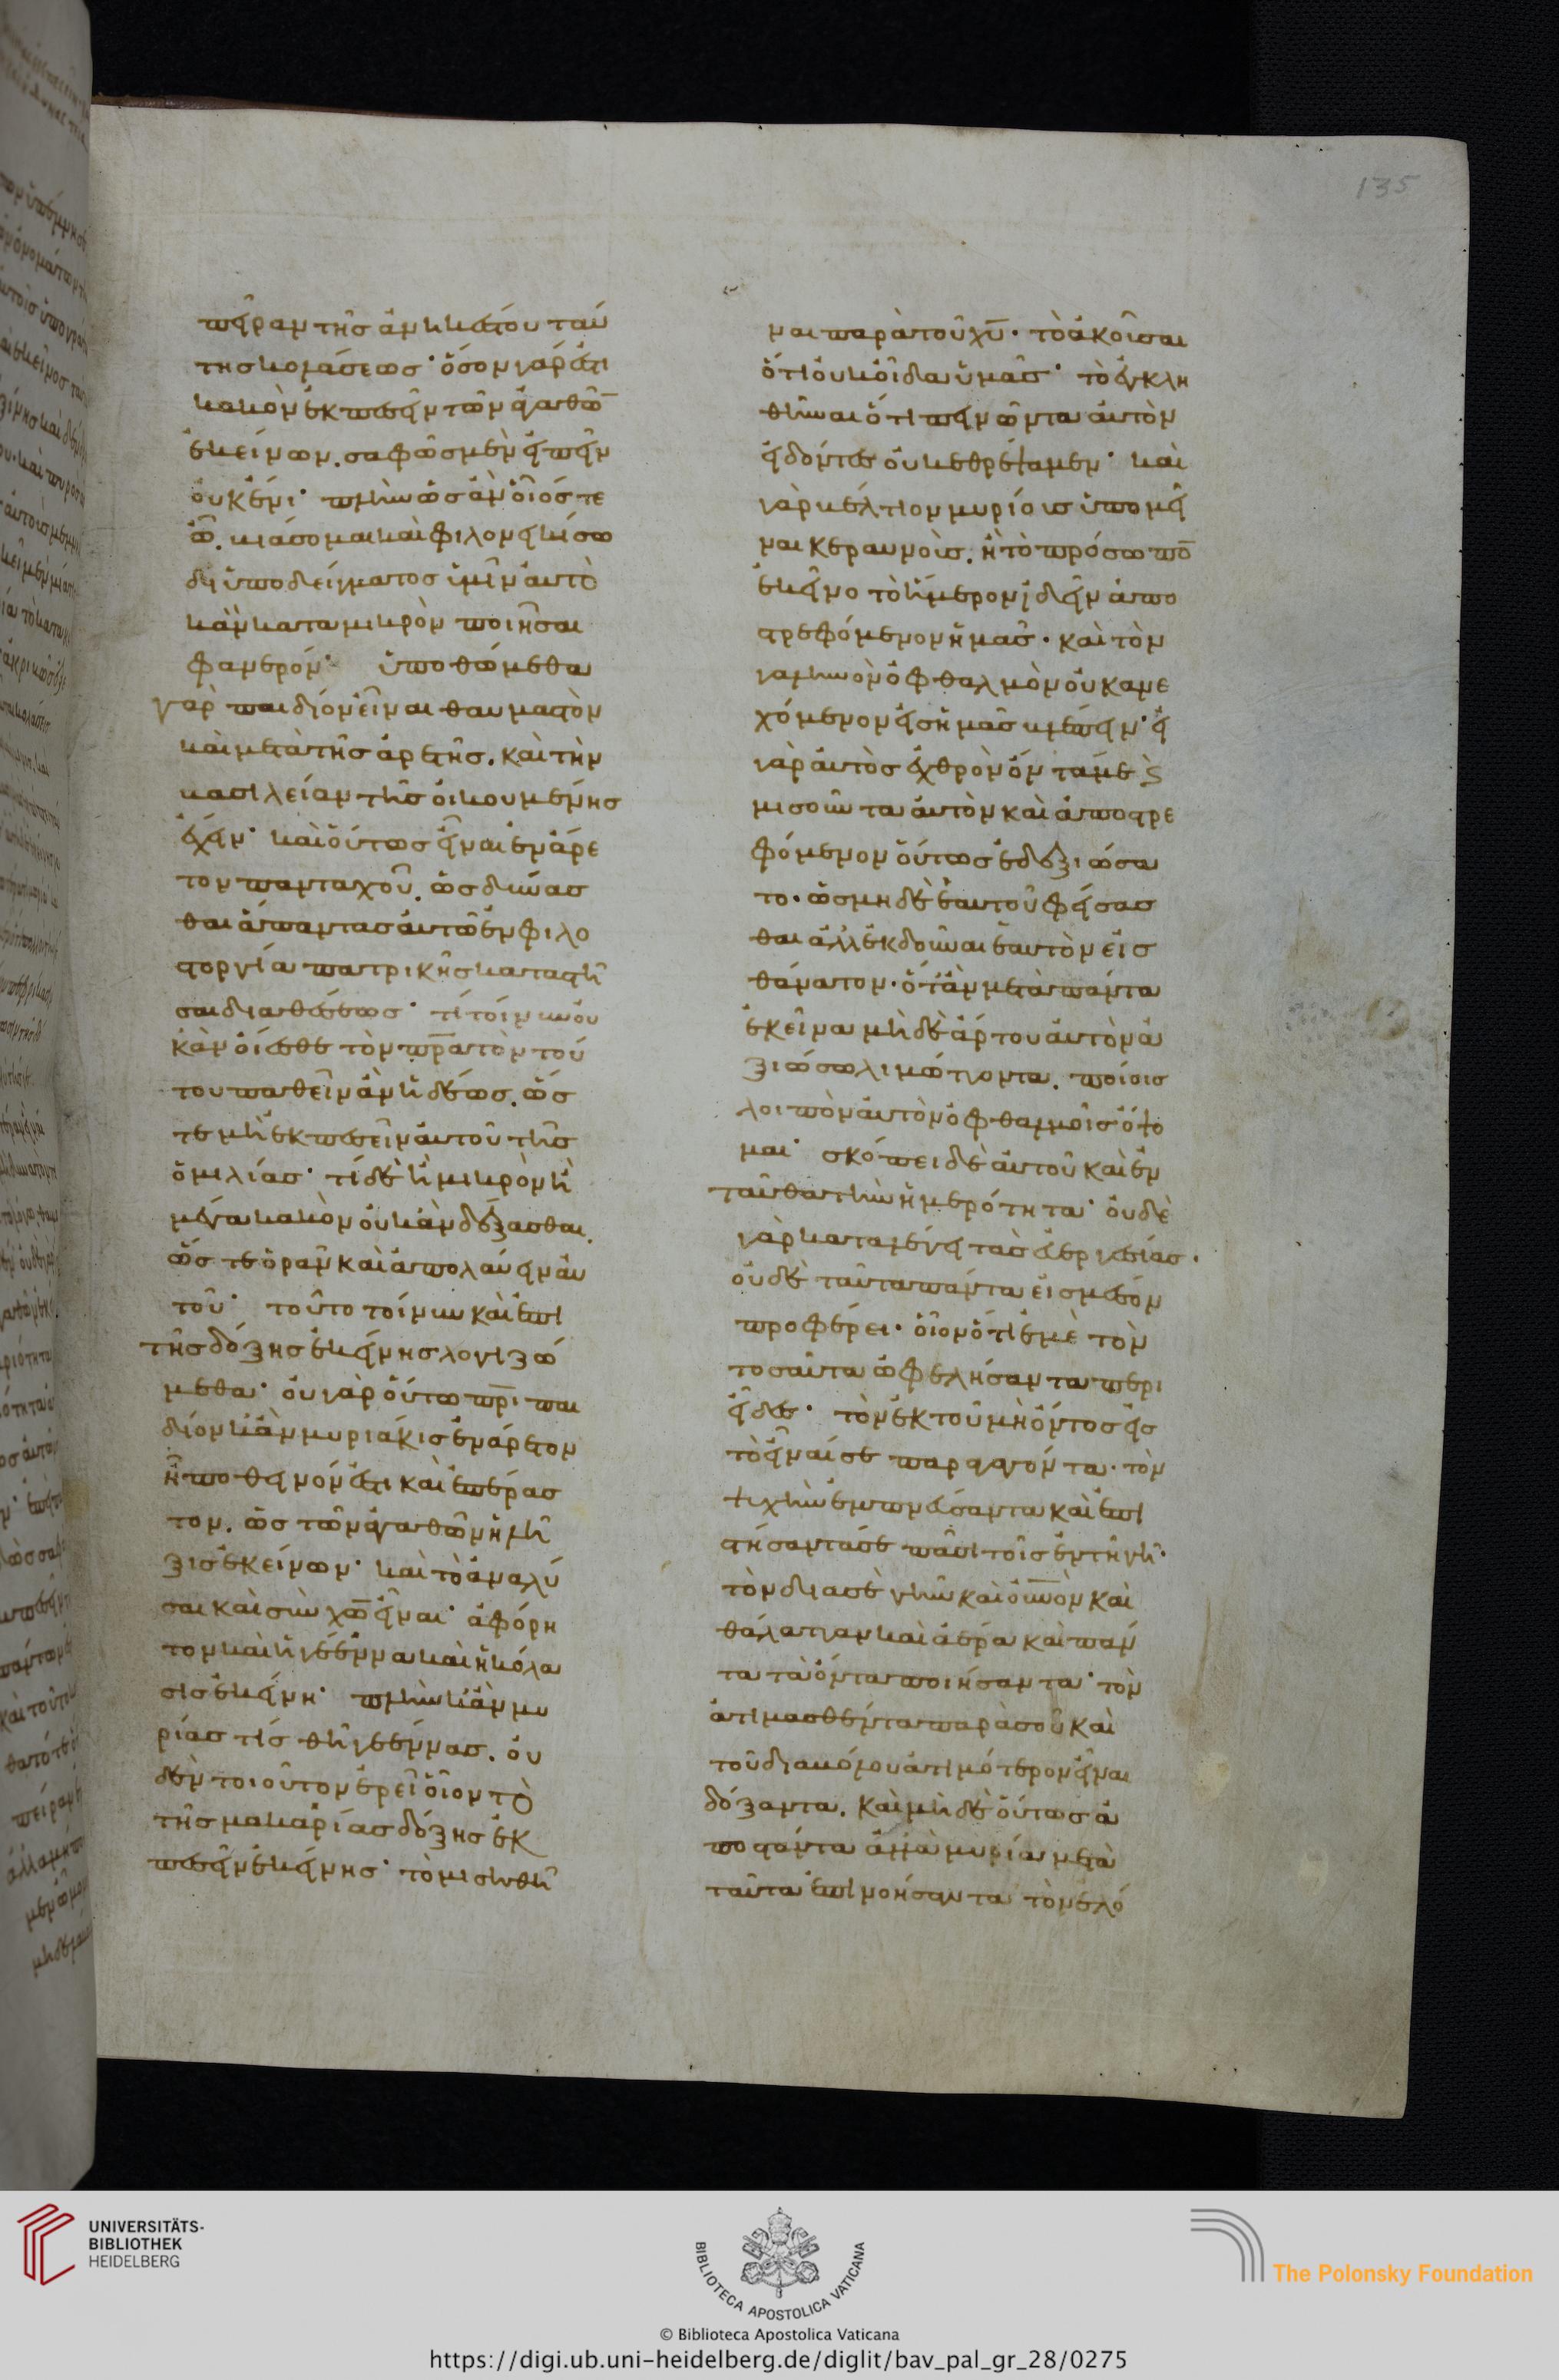 πεῖραν τῆς ἀνηκέστου ταύ
της κολάσεως· ὅσον γάρ ἐστι
κακὸν ἐκπεσεῖν τῶν ἀγαθῶ̅
ἐκείνων. σαφῶς μὲν εἰπεῖν
οὐκ ἔνι· πλὴν ὡς ἂν οἷός τε
ὦ. βιάσομαι καὶ φιλονεικήσω
δι ὑποδείγματος ὑμῖν αὐτὸ
κἂν κατα μικρὸν ποιῆσαι
φανερόν· ὑποθώμεθα
γὰρ παιδίον εἶναι θαυμαστὸν
καὶ μετὰ τῆς ἀρετῆς. καὶ τὴν
βασιλείαν τῆς οἰκουμένης
ἔχειν· καὶ οὕτως εἶναι ἐνάρε
τον πανταχοῦ. ὡς δύνασ
θαι ἅπαντας αὐτῶ ἐν φιλο
στοργία πατρικῆς καταστῆ
σαι διαθέσεως· τί τοίνυν οὐ
κἂν οἴεσθε τὸν πρ̅α τὸν τού
του παθεῖν ἂν ἡδέως. ὥσ
τε μὴ ἐκπεσεῖν αὐτοῦ τῆς
ὁμιλίας· τί δὲ ἢ μικρὸν ἢ
μέγα κακὸν οὐκ ἂν δέξασθαι.
ὥστε ὁρᾶν καὶ ἀπολαύειν αὐ
τοῦ· τοῦτο τοίνυν καὶ ἐπὶ
τῆς δόξης ἐκείνης λογιζώ
μεθα· οὐ γὰρ οὕτω πρ̅ι παι
δίον κἂν μυριάκις ἐνάρετον
ἦ ποθεινόν ἐστι καὶ ἐπέρασ
τον. ὡς τῶν ἀγαθῶν ἡ λῆ
ξις ἐκείνων· καὶ τὸ ἀναλύ
σαι καὶ σὺν χω̅ εἶναι· ἀφόρη
τον καὶ ἡ γέεννα καὶ ἡ κόλα
σις ἐκείνη· πλὴν κἂν μυ
ρίας τίς θῆ γεέννας. οὐ
δὲν τοιοῦτον ἐρεῖ οἷον τὸ
τῆς μακαρίας δόξης ἐκ
πεσεῖν ἐκείνης· τὸ μισηθῆ
ναι παρὰ τοῦ χυ̅· τὸ ἀκοῦσαι
ὅτι οὐκ οἶδα ὑμᾶς· τὸ ἐγκλη
θῆναι ὅτι πεινῶντα αὐτὸν
εἰδόντες οὐκ ἐθρέψαμεν· καὶ
γὰρ βέλτιον μυρίους ὑπομεῖ
ναι κεραυνοὺς. ἢ τὸ πρόσωπο̅
ἐκεῖνο τὸ ἥμερον ἰδεῖν ἀπο
στρεφόμενον ἡμᾶς· καὶ τὸν
γαληνὸν ὀφθαλμὸν οὐκ ανε
χόμενον εἰς ἡμᾶς βλέπειν· εἰ
γὰρ αὐτὸς ἐχθρὸν ὄντα με ϗ
μισοῦντα αὐτὸν καὶ ἀποστρε
φόμενον οὕτως ἐδεξιώσα
το· ὡς μηδὲ ἑαυτοῦ φείσασ
θαι ἀλλ ἐκδοῦναι ἑαυτὸν εἰς
θάνατον· ὅταν μετὰ πάντα
ἐκεῖνα μηδὲ ἄρτου αὐτὸν ἀ
ξιώσω λιμώττοντα. ποίοις
λοιπὸν αὐτὸν ὀφθαλμοῖς ὄψο
μαι· σκόπει δὲ αὐτοῦ καὶ ἐν
ταῦθα τὴν ἡμερότητα· οὐδὲ
γὰρ καταλέγει τὰς εὐεργεσίας·
οὐδὲ ταῦτα πάντα εἰς μέσον
προφέρει· οἷον ὅτι ἐμὲ τὸν
τοσαῦτα ὠφελήσαντα περι
εῖδες· τὸν ἐκ τοῦ μὴ ὄντος εἰς
τὸ εἶναί σε παραγαγόντα· τὸν
ψυχὴν ἐμπνεύσαντα καὶ ἐπι
στήσαντά σε πᾶσι τοῖς ἐν τῆ γῆ·
τὸν δια σὲ γῆν καὶ οὐ̅νὸν καὶ
θάλατταν καὶ ἀέρα καὶ πάν
τα τὰ ὄντα ποιήσαντα· τὸν
ἀτιμασθέντα παρὰ σοῦ καὶ
τοῦ διαβόλου ἀτιμότερον εἶναι
δόξαντα. καὶ μηδὲ οὕτως ἀ
ποστάντα ἀλλὰ μυρία μετὰ
ταῦτα ἐπινοήσαντα τὸν ἑλό
135
UNIVERSITÄTS-
BIBLIOTHEK
HEIDELBERG
BIBLIOTECA APOSTOLICA VATICANA
The Polonsky Foundation
© Biblioteca Apostolica Vaticana
https://digi.ub.uni-heidelberg.de/diglit/bav_pal_gr_28/0275